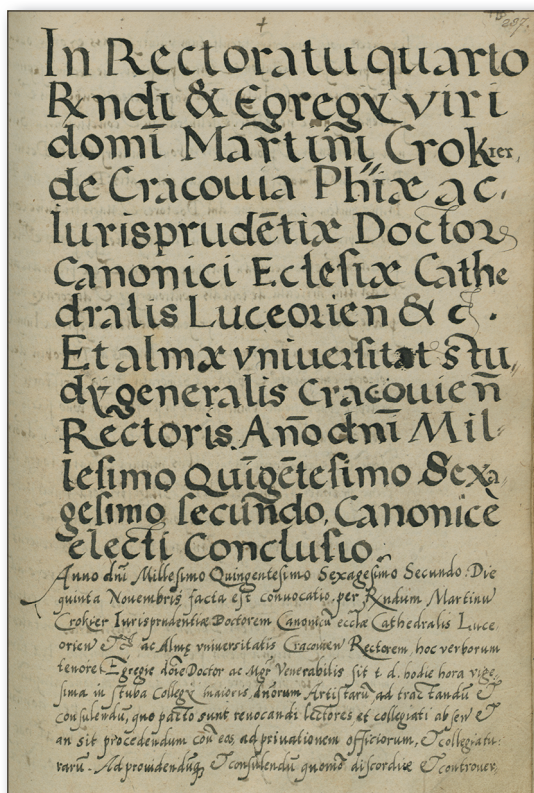 287.
In Rectoratu quarto
Rndi & Egregÿ viri
domī Martini Crokier,
de Cracouia Phiæ ac.
Iurisprudētiæ Doctor
Canonici Eclesiæ Cathe
dralis Luceorien̄ & c.
Et almæ vniuersitat stu,
dÿ generalis Cracouien̄
Rectoris. Año dñi Mil-
lesimo Quīgētesimo Sexa
gesimo secundo, Canonicè
electi Conclusio.
Anno dñi Millesimo Quingentesimo Sexagesimo Secundo: Die
quinta Nouembris facta est conuocatio, per Rndum Martinū
Crokier Iurisprudentiæ Doctorem Canonicū ecclæ Cathedralis Luce
orien ac Almę vniuersitatis Cracouien Rectorem, hoc verborum
tenore. Egregie dōie Doctor ac Mgr Venerabilis sit t. d. hodie hora vige
sima in stuba Collegÿ maioris, dñorum Artistarū, ad tractandū &
consulendū, quo pacto sunt reuocandi lectores et collegiati absen &
an sit procedendum con̄ eos, ad priuationem officiorum, & collegiatu
rarū. Ad prouidendūq, & consulendū quomō discordiæ & controuer,